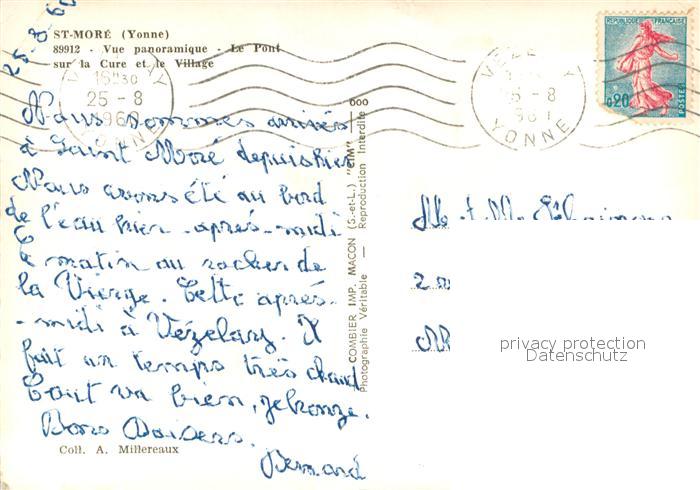 25-8-60
ST-MORÉ (Yonne)
89912 - Vue panoramique - Le Pont
sur la Cure et le Village
16H30
25 - 8
YONNE
RÉPUBLIQUE FRANÇAISE
0,20
POSTES
Nous sommes arrivés
à Saint Moré depuis hier
Nous avons été au bord
de l'eau hier après-midi
Ce matin au rocher de
la Vierge. Cette après-
-midi à Vézelay. Il
fait un temps très chaud
Tout va bien, je bronze.
Bons Baisers.
Bernard
Coll. A. Millereaux
COMBIER IMP. MACON (S.-et-L.) "CIM"
Photographie Véritable — Reproduction Interdite
M. & Me
privacy protection
Datenschutz